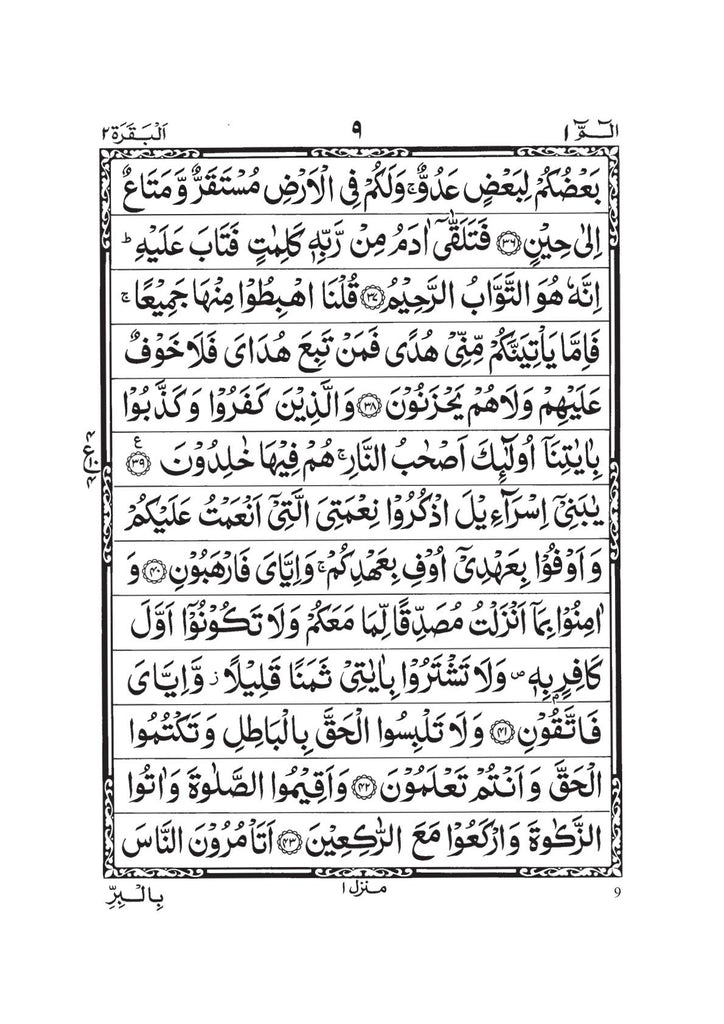 الٓمّٓ ١
٩
اَلْبَقَرَة ٢
بَعْضُكُمْ لِبَعْضٍ عَدُوٌّ ۚ وَلَكُمْ فِی الْاَرْضِ مُسْتَقَرٌّ وَّ مَتَاعٌ
اِلٰی حِیْنٍ ﴿۳۶﴾ فَتَلَقّٰۤی اٰدَمُ مِنْ رَّبِّهٖ كَلِمٰتٍ فَتَابَ عَلَیْهِ ؕ
اِنَّهٗ هُوَ التَّوَّابُ الرَّحِیْمُ ﴿۳۷﴾ قُلْنَا اهْبِطُوْا مِنْهَا جَمِیْعًا ۚ
فَاِمَّا یَاْتِیَنَّكُمْ مِّنِّیْ هُدًی فَمَنْ تَبِعَ هُدَایَ فَلَا خَوْفٌ
عَلَیْهِمْ وَلَا هُمْ یَحْزَنُوْنَ ﴿۳۸﴾ وَالَّذِیْنَ كَفَرُوْا وَ كَذَّبُوْا
بِاٰیٰتِنَاۤ اُولٰٓىِٕكَ اَصْحٰبُ النَّارِ ۚ هُمْ فِیْهَا خٰلِدُوْنَ ﴿۳۹﴾ ع
یٰبَنِیْۤ اِسْرَآءِیْلَ اذْكُرُوْا نِعْمَتِیَ الَّتِیْۤ اَنْعَمْتُ عَلَیْكُمْ
وَ اَوْفُوْا بِعَهْدِیْۤ اُوْفِ بِعَهْدِكُمْ ۚ وَ اِیَّایَ فَارْهَبُوْنِ ﴿۴۰﴾ وَ
اٰمِنُوْا بِمَاۤ اَنْزَلْتُ مُصَدِّقًا لِّمَا مَعَكُمْ وَلَا تَكُوْنُوْۤا اَوَّلَ
كَافِرٍۭ بِهٖ ۪ وَلَا تَشْتَرُوْا بِاٰیٰتِیْ ثَمَنًا قَلِیْلًا ؗ وَّ اِیَّایَ
فَاتَّقُوْنِ ﴿۴۱﴾ وَلَا تَلْبِسُوا الْحَقَّ بِالْبَاطِلِ وَ تَكْتُمُوا
الْحَقَّ وَ اَنْتُمْ تَعْلَمُوْنَ ﴿۴۲﴾ وَ اَقِیْمُوا الصَّلٰوةَ وَ اٰتُوا
الزَّكٰوةَ وَ ارْكَعُوْا مَعَ الرّٰكِعِیْنَ ﴿۴۳﴾ اَتَاْمُرُوْنَ النَّاسَ
9
منزل ١
بِالْبِرِّ